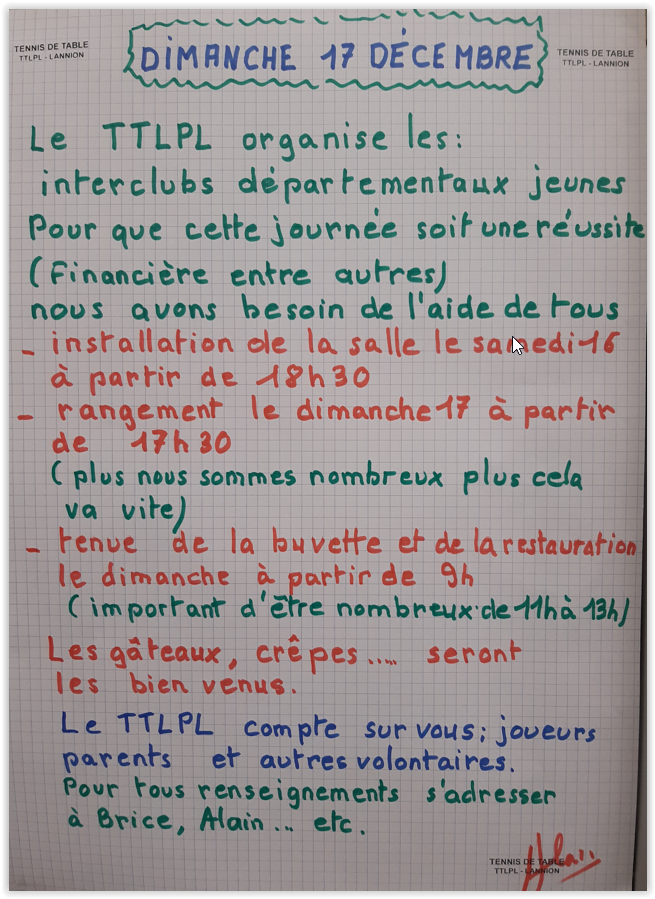 TENNIS DE TABLE
TTLPL - LANNION
DIMANCHE 17 DÉCEMBRE
TENNIS DE TABLE
TTLPL - LANNION
Le TTLPL organise les:
interclubs départementaux jeunes
Pour que cette journée soit une réussite
(Financière entre autres)
nous avons besoin de l'aide de tous
- installation de la salle le samedi 16
à partir de 18h30
- rangement le dimanche 17 à partir
de 17h30
(plus nous sommes nombreux plus cela
va vite)
- tenue de la buvette et de la restauration
le dimanche à partir de 9h
(important d'être nombreux de 11h à 13h)
Les gâteaux, crêpes..... seront
les bien venus.
Le TTLPL compte sur vous: joueurs
parents et autres volontaires.
Pour tous renseignements s'adresser
à Brice, Alain... etc.
Alain
TENNIS DE TABLE
TTLPL - LANNION